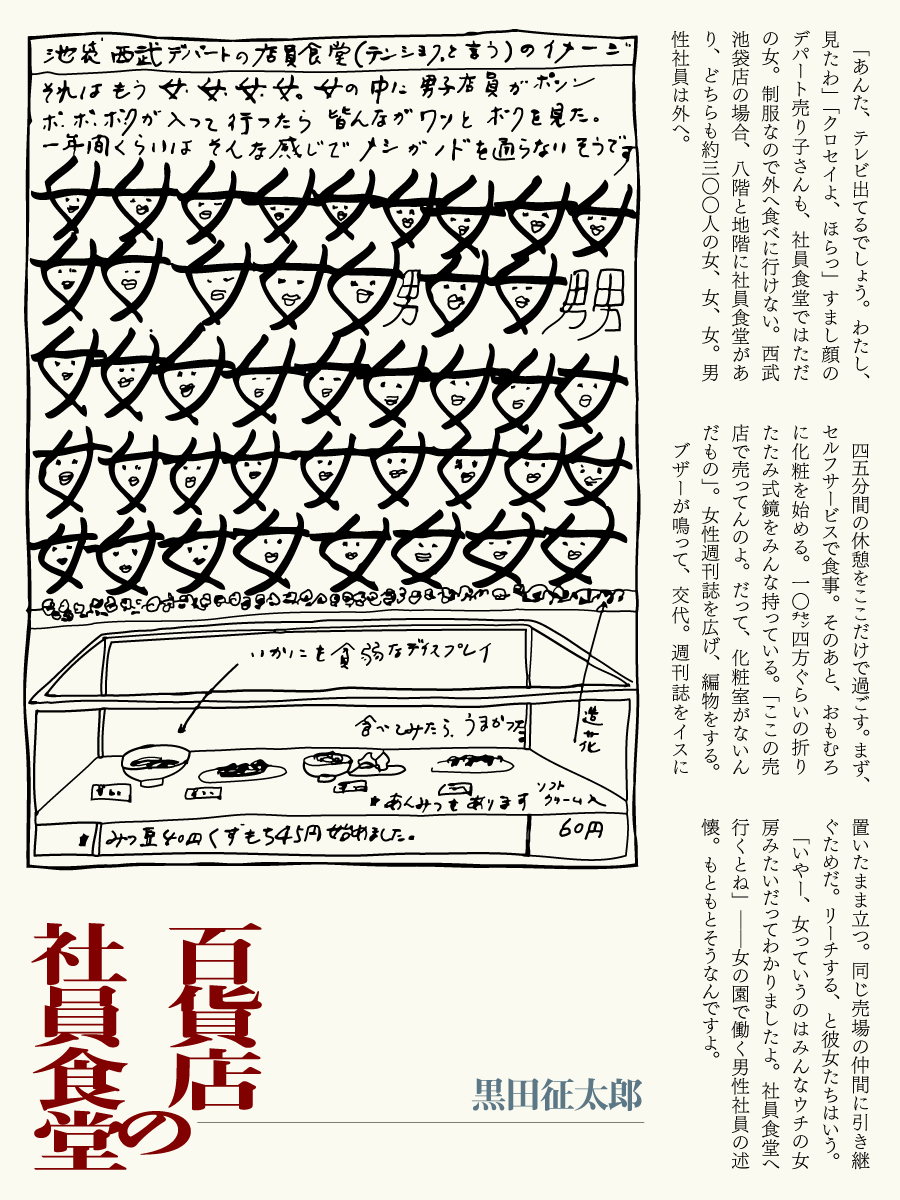 池袋 西武デパートの店員食堂(テンショクと言う)のイメージ
それはもう 女、女、女、女。女の中に 男子店員がポツン
ボ、ボ、ボクが入って行ったら 皆んながワッと ボクを見た。
一年間くらいは そんな感じで メシがノドを通らないそうです
女女女女女女女女女
女女女女女男女女男男
女女女女女女女女女
女女女女女女女女女
女女女女女女女女
いかにも貧弱なディスプレイ
食べてみたら、うまかった。
造花
あんみつもあります
ソフトクリーム入
みつ豆40円くずもち45円始めました。
60円
「あんた、テレビ出てるでしょう。わたし、
見たわ」「クロセイよ、ほらっ」すまし顔の
デパート売り子さんも、社員食堂ではただ
の女。制服なので外へ食べに行けない。西武
池袋店の場合、八階と地階に社員食堂があ
り、どちらも約三〇〇人の女、女、女。男
性社員は外へ。
四五分間の休憩をここだけで過ごす。まず、
セルフサービスで食事。そのあと、おもむろ
に化粧を始める。一〇㌢四方ぐらいの折り
たたみ式鏡をみんな持っている。「ここの売
店で売ってんのよ。だって、化粧室がないん
だもの」。女性週刊誌を広げ、編物をする。
ブザーが鳴って、交代。週刊誌をイスに
置いたまま立つ。同じ売場の仲間に引き継
ぐためだ。リーチする、と彼女たちはいう。
「いやー、女っていうのはみんなウチの女
房みたいだってわかりましたよ。社員食堂へ
行くとね」――女の園で働く男性社員の述
懐。もともとそうなんですよ。
百貨店の
社員食堂
黒田征太郎